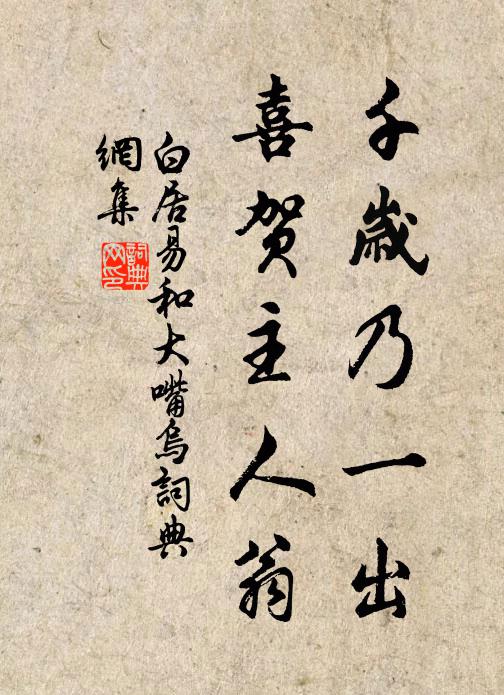 千歲乃一出
喜贺主人翁
白居易和大嘴烏詞典
網集
詞典
网印